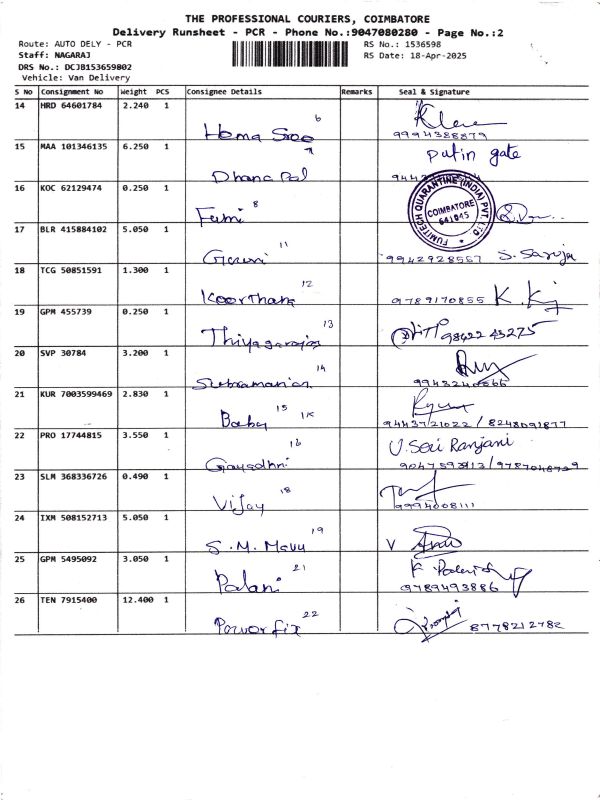 THE PROFESSIONAL COURIERS, COIMBATORE
Delivery Runsheet - PCR - Phone No.:9047080280 - Page No.:2
Route: AUTO DELY - PCR
Staff: NAGARAJ
DRS No.: DCJB153659802
Vehicle: Van Delivery
RS No.: 1536598
RS Date: 18-Apr-2025
S No Consignment No Weight PCS Consignee Details Remarks Seal & Signature
14 HRD 64601784 2.240 1 6
Hema 9994388879
15 MAA 101346135 6.250 1 7 putin gate
Dhanapal
16 KOC 62129474 0.250 1 8
Fumi
FUMITECH QUARANTINE (INDIA) PVT. LTD
COIMBATORE
641045
17 BLR 415884102 5.050 1 11
Gowri 9942928567 S. Saruja
18 TCG 50851591 1.300 1 12
9789170855
19 GPM 455739 0.250 1 13
Thiyagarajan 98422 45275
20 SVP 30784 3.200 1 14
Subramanian
21 KUR 7003599469 2.830 1 15 1K
Babu 9443721022 / 8248091877
22 PRO 17744815 3.550 1 16
U. Seri Ranjani
23 SLM 368336726 0.490 1 18
Vijay 9994008111
24 IXM 508152713 5.050 1 19
S.M. V
25 GPM 5495092 3.050 1 21
Palani 9789493886
26 TEN 7915400 12.400 1 22
Powerfix 8778212782